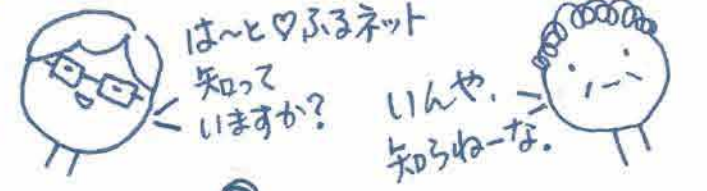 は〜と♡ふるネット
知って
いますか?
いんや、
知らねーな。